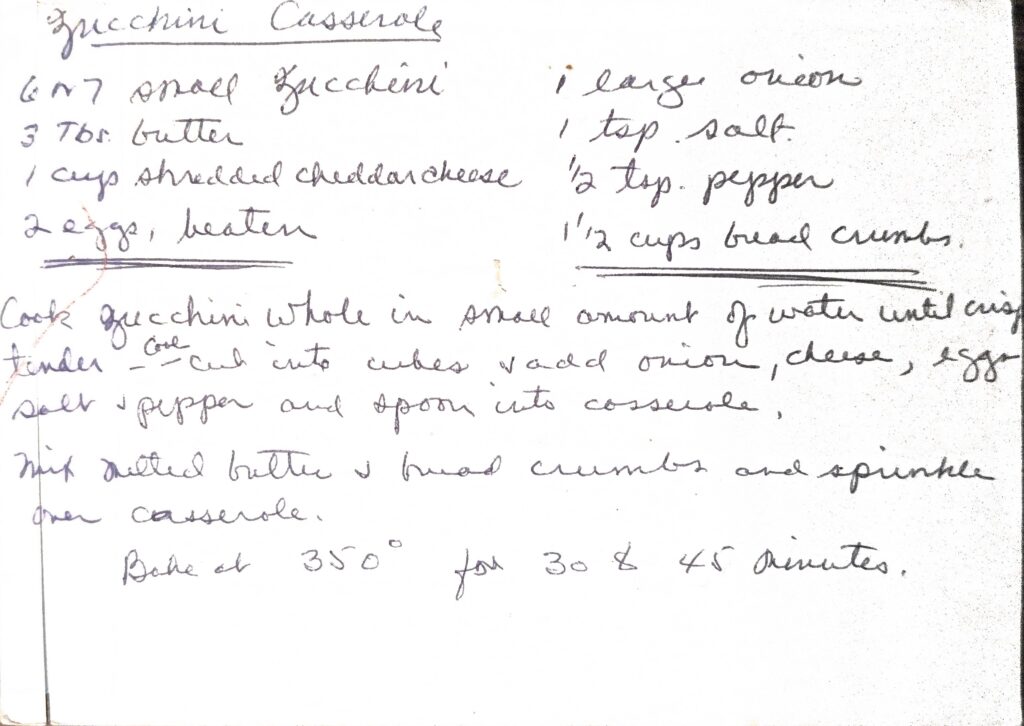 Zucchini Casserole
6 or 7 small Zucchini
3 Tbs. butter
1 cups shredded cheddar cheese
2 eggs, beaten
1 large onion
1 tsp. salt.
1/2 tsp. pepper
1 1/2 cups bread crumbs.
Cook zucchini whole in small amount of water until crisp
tender - Cool - cut into cubes & add onion, cheese, eggs
salt & pepper and spoon into casserole.
Mix melted butter & bread crumbs and sprinkle
over casserole.
Bake at 350° for 30 & 45 minutes.